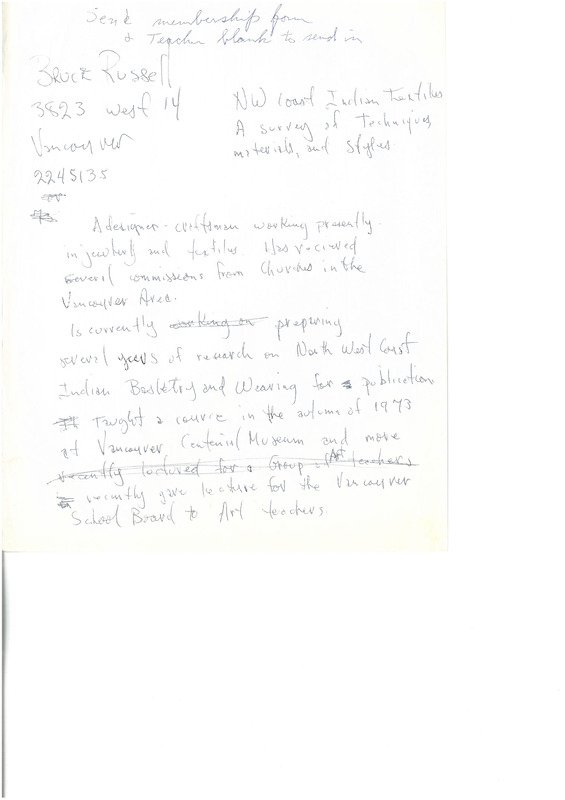 Send membership form
& Teacher blank to send in
Bruce Russell
3823 West 14
Vancouver
2245135
or
NW Coast Indian Textiles
A survey of Techniques,
materials, and styles.
A designer-craftsman working presently
in jewellery and textiles. Has recieved
several commissions from Churches in the
Vancouver Area.
Is currently working on preparing
several years of research on North West Coast
Indian Basketry and Weaving for publication
It Taught a course in the autumn of 1973
at Vancouver Centenial Museum and more
recently lectured for a Group of Art teachers
recently gave lecture for the Vancouver
School Board to Art teachers.